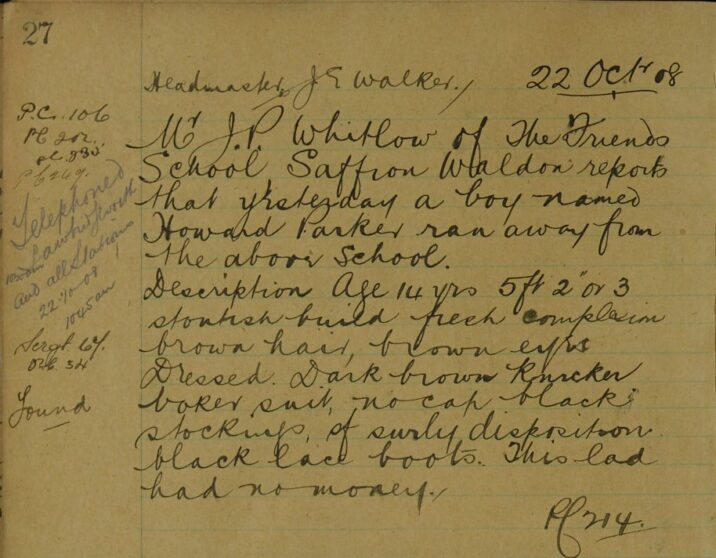 27
Headmaster, J E Walker. 22 Octr 08
P.C. 106
PC 202.
Mr J.P. Whitlow of The Friends
School, Saffron Waldon reports
that yesterday a boy named
Howard Parker ran away from
the above School.
Telephoned
and all Stations
22-10-08
1045 am
Description Age 14 yrs 5ft 2" or 3
stoutish build fresh complexion
brown hair, brown eyes
Dressed. Dark brown knicker
boker suit, no cap black
stockings, of surly disposition
black lace boots. This lad
had no money.
Sergt 67.
Found
PC 214.